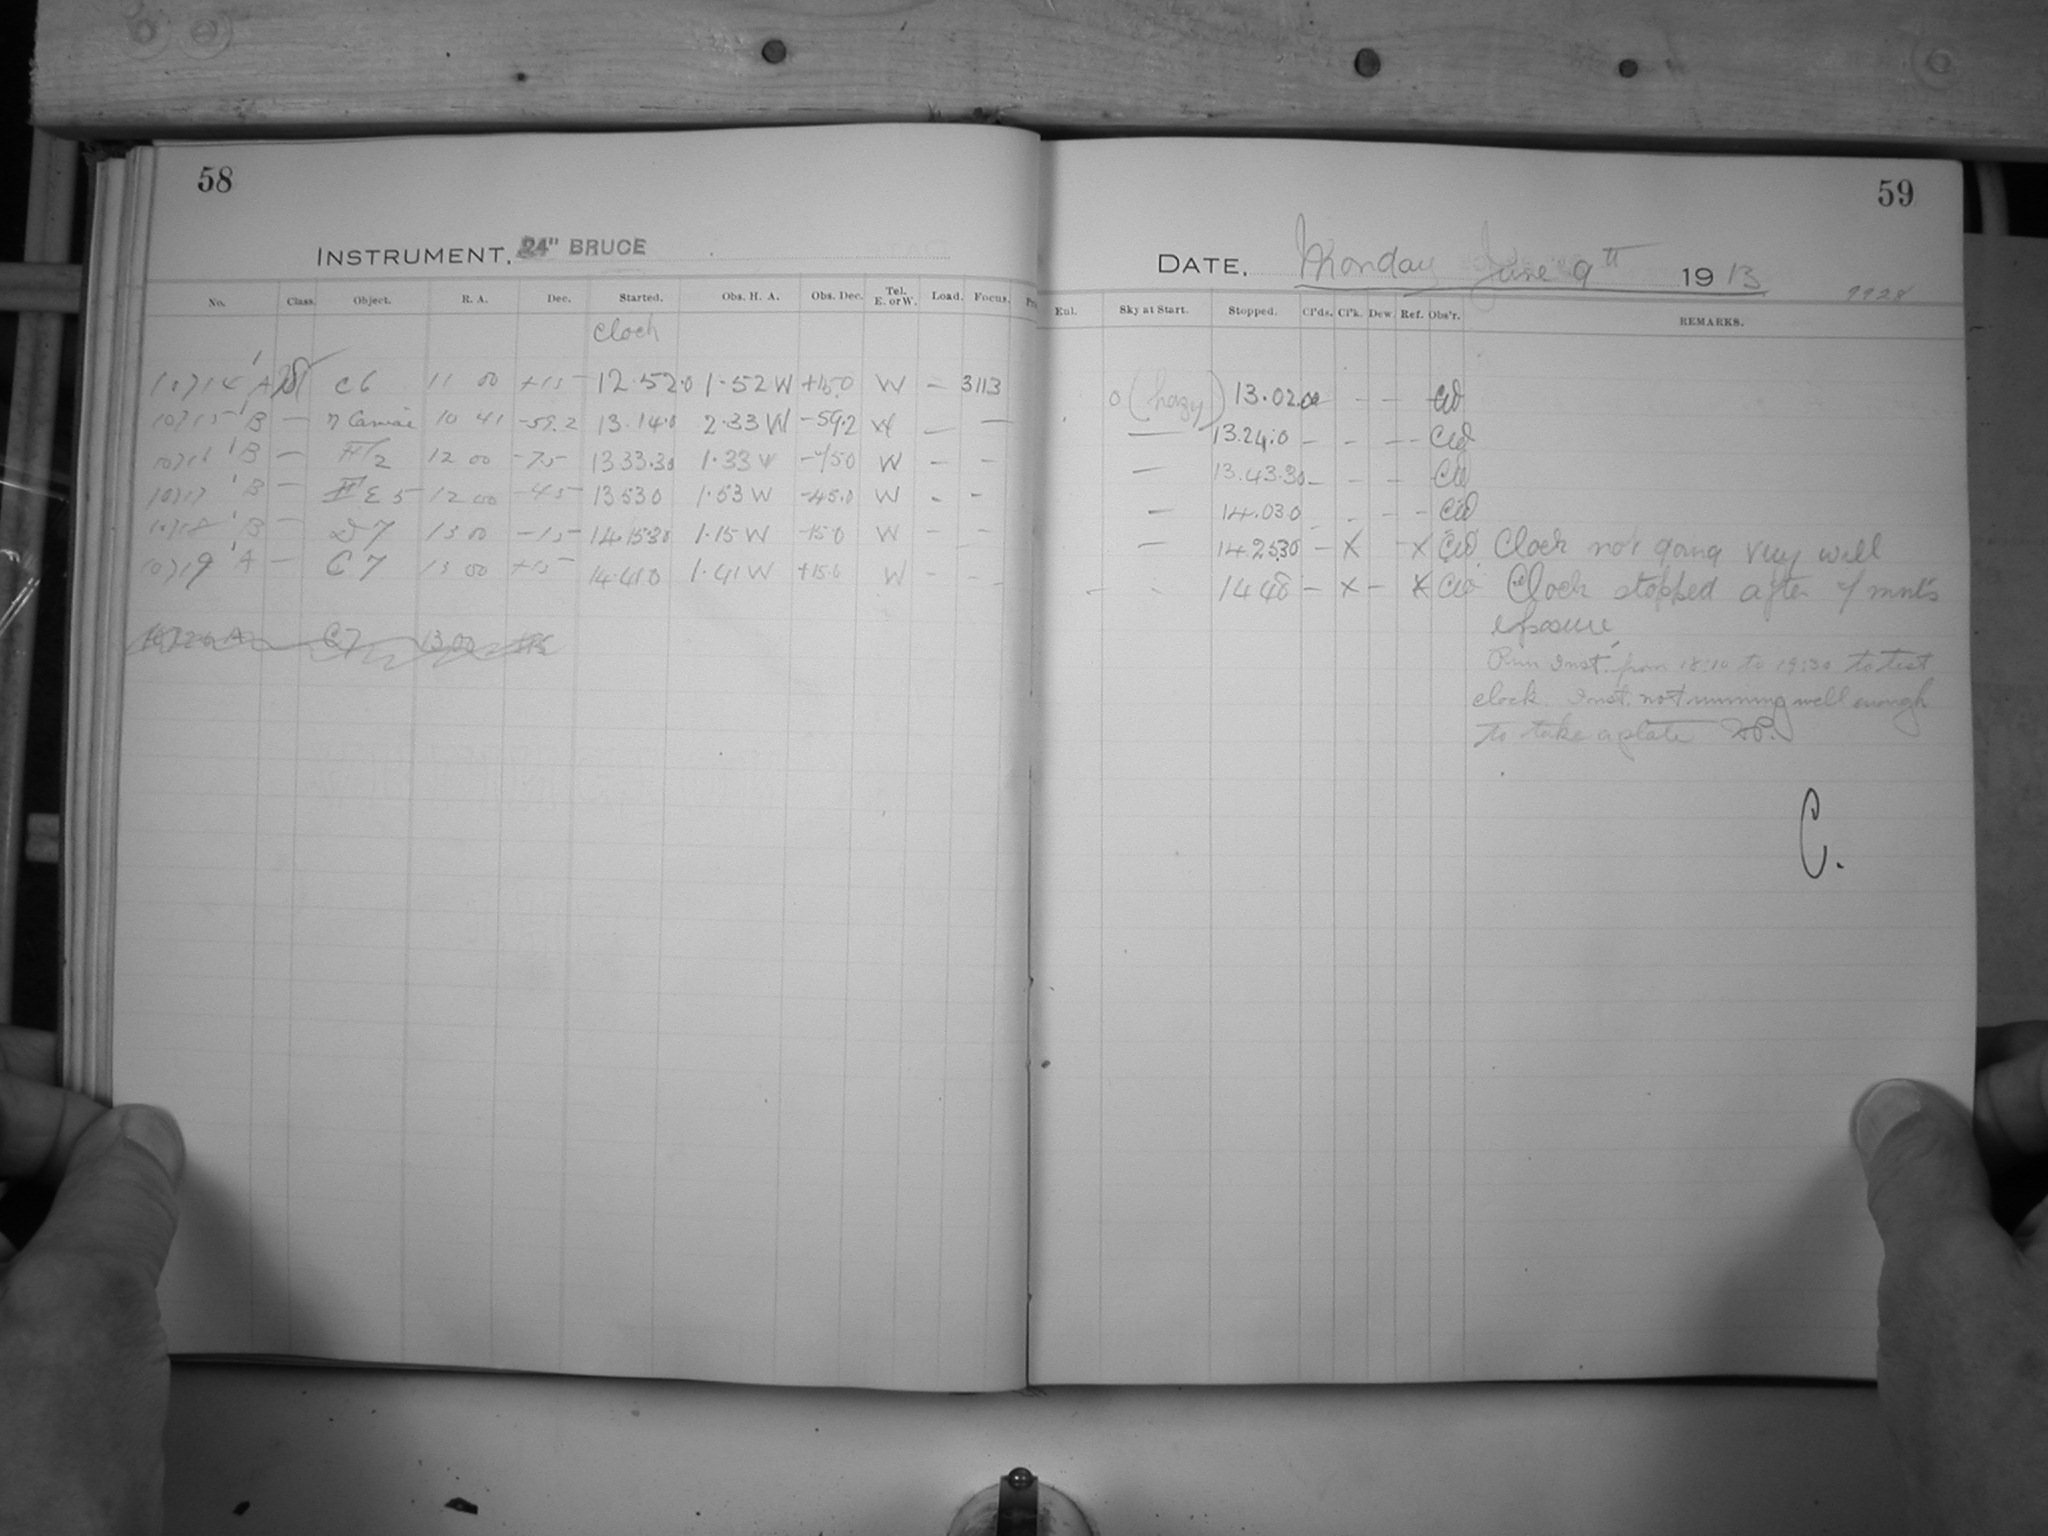 58
INSTRUMENT, 24" BRUCE
No. Class. Object. R. A. Dec. Started. Obs. H. A. Obs. Dec. Tel. E. or W. Load. Focus.
Clock
10714 A C6 11 00 +15 12.52.0 1.52 W +15.0 W – 3113
10715 B — η Carinae 10 41 -59.2 13.14.0 2.33 W -59.2 W — —
10716 B — 12 00 -75 13 33.30 1.33 W -75.0 W – –
10717 B — E 5 12 00 -45 13 53 0 1.53 W -45.0 W - -
10718 B — D 7 13 00 -15 14.15 30 1.15 W -15.0 W – –
10719 A — C 7 13 00 +15 14.41 0 1.41 W +15.0 W - -
10720 A C7 13 00
59
DATE, Monday June 9th 1913
9928
Enl. Sky at Start. Stopped. Cl'ds. Cl'k. Dew. Ref. Obs'r. REMARKS.
0 (hazy) 13.02.0 – – CW
— 13.24.0 – – – – CW
— 13.43.30 – – – – CW
— 14.03 0 – – – – CW
— 14.25 30 – X – X CW Clock not going very well
14 48 – X – X CW Clock stopped after 7 mnts
exposure
Run Inst. from 18:10 to 19:30 to test
clock. Inst. not running well enough
to take a plate
C.